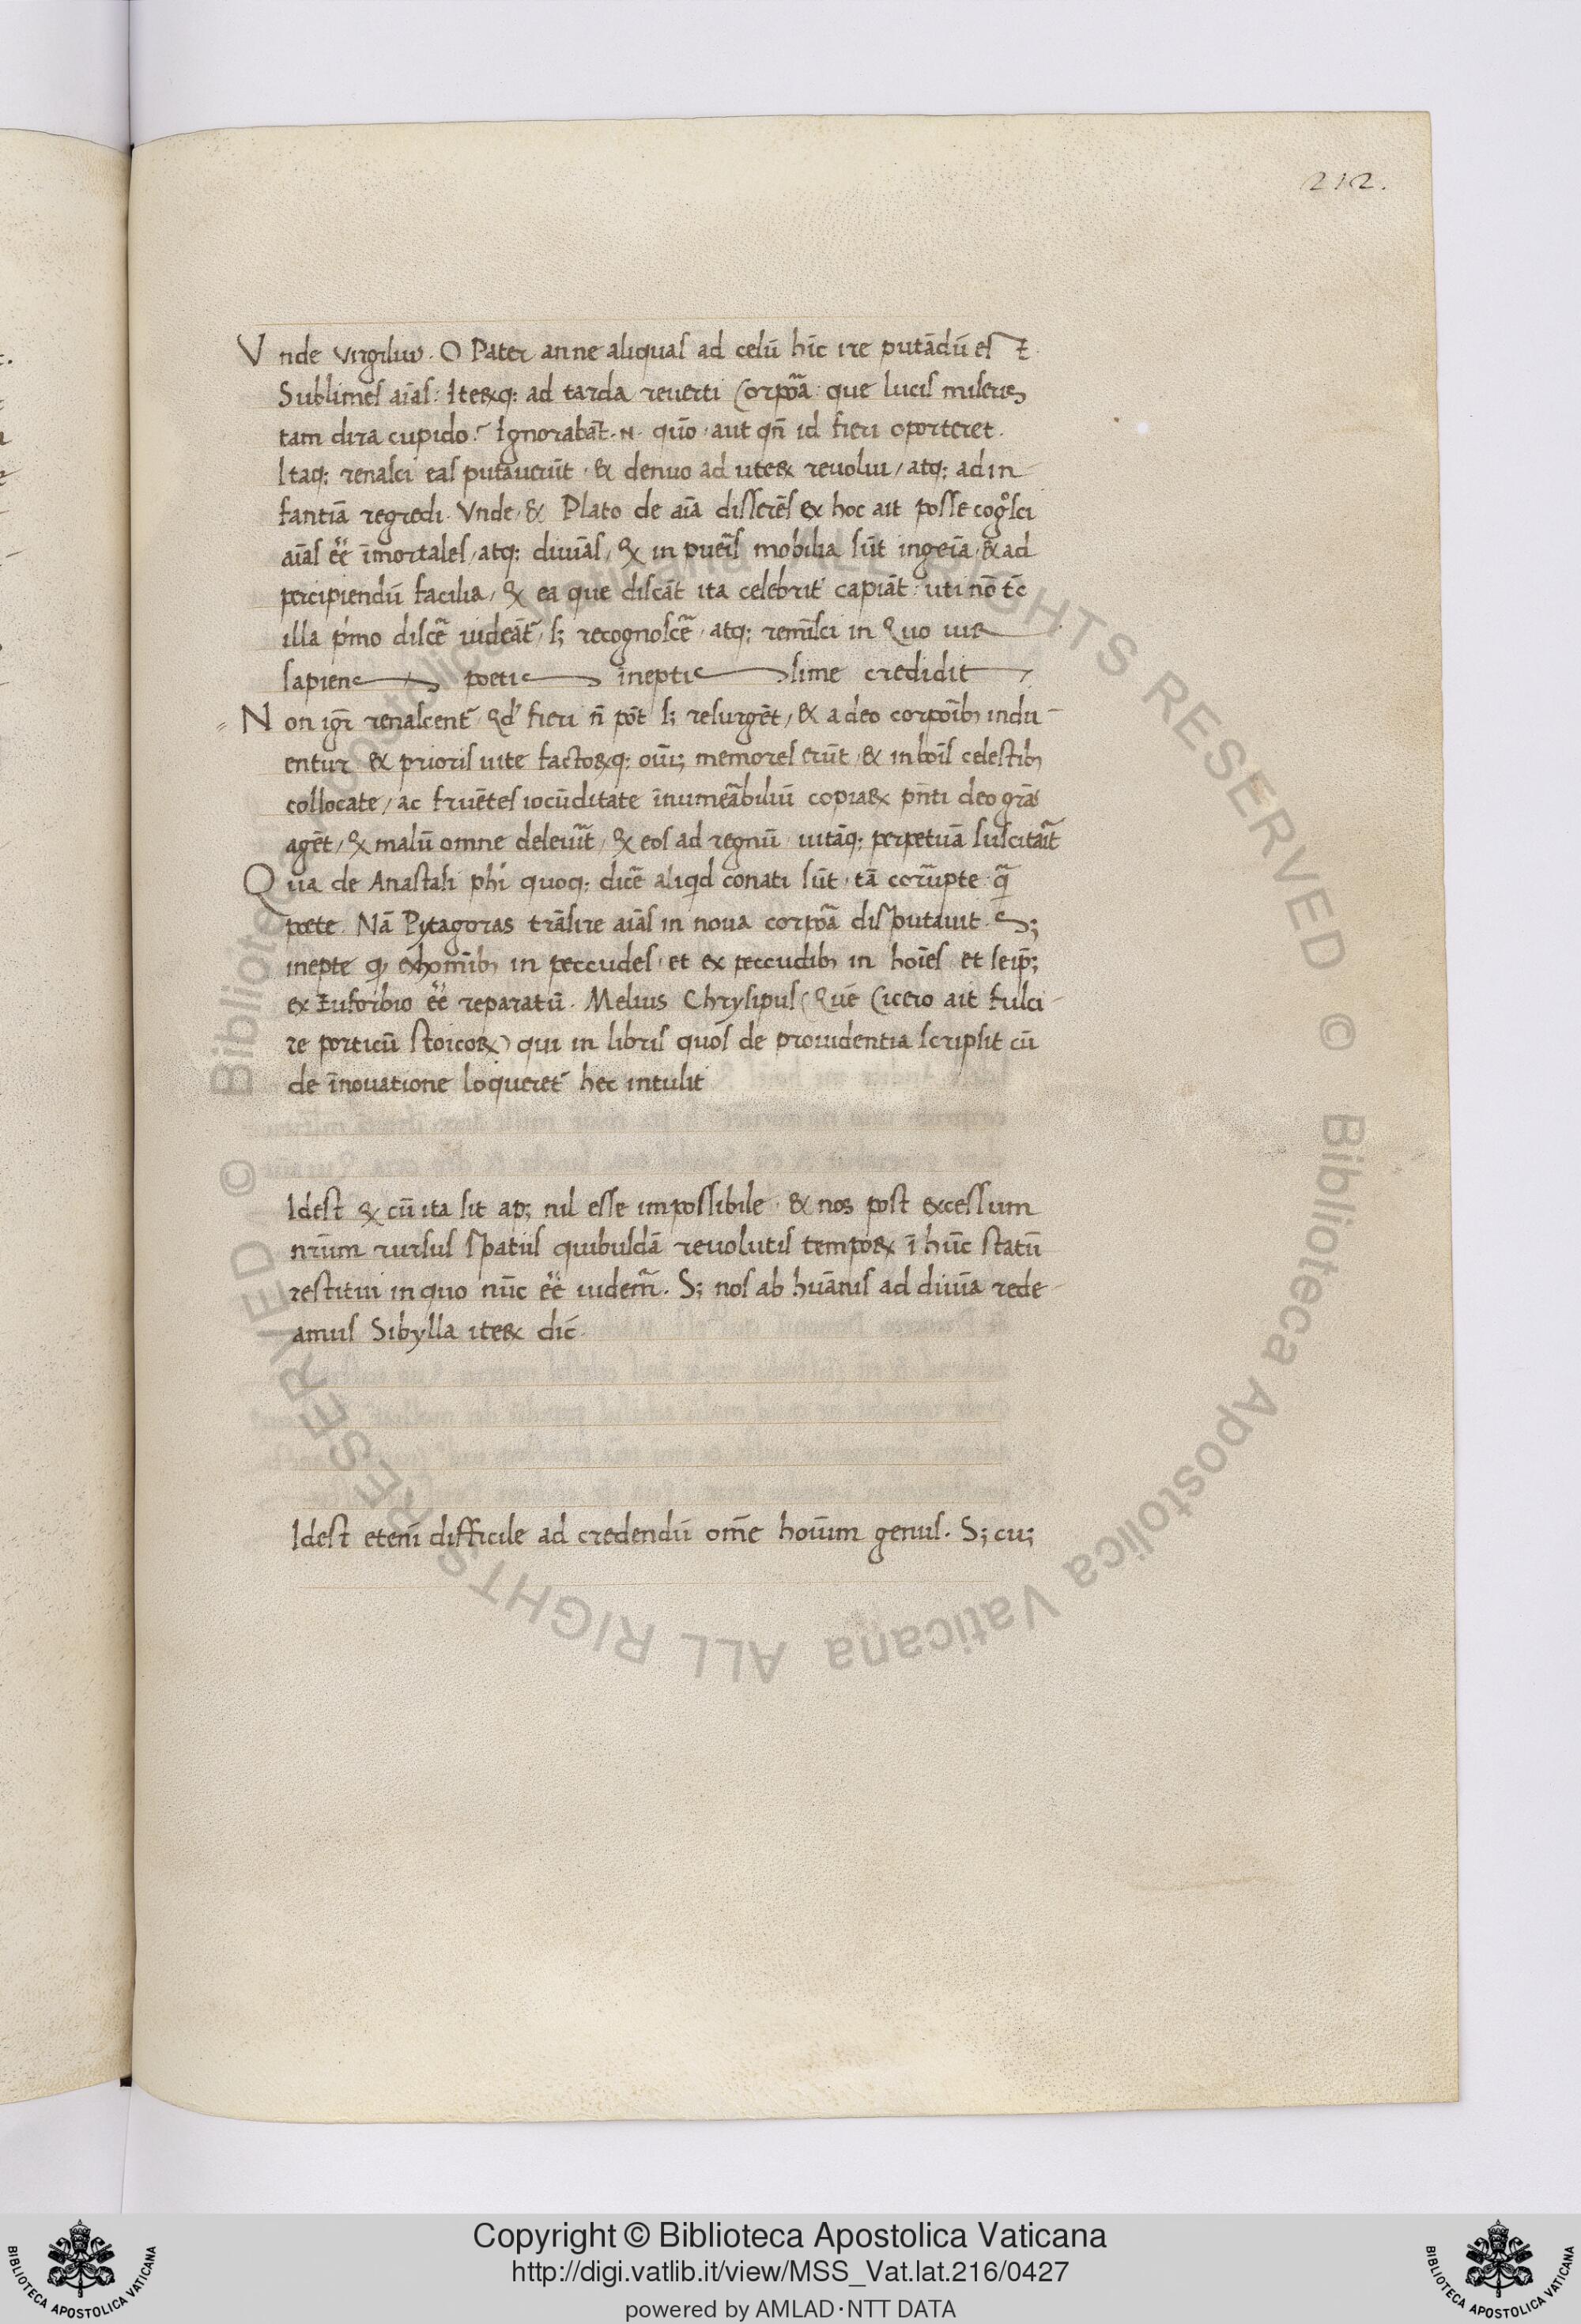 212.
Vnde Virgiliuſ. O Pater anne aliquaſ ad celū hīc ire putādū eſt
Sublimeſ aīaſ: Iteꝝq; ad tarda reuerti Corpōa que luciſ miſeriſ
tam dira cupido? Ignorabāt. N. quō aut qn̄ id fieri oporteret.
Itaq; renaſci eaſ putauerūt, & denuo ad uteꝝ reuolui, atq; ad in
fantiā regredi. Vnde, & Plato de aīa diſſerēſ ex hoc ait poſſe cogᵒſci
aīaſ ēē īmortaleſ, atq; diuīaſ, & in puēiſ mobilia ſūt ingeīa, & ad
percipiendū facilia, & ea que diſcāt ita celebrit̄ capiāt: uti nō tc̄
illa pⁱmo diſcē̄ uideāt̄, ſ; recognoſcē̄, atq; remīſci in Quo uir
ſapienſ poetiſ ineptiſſime credidit
Non igr̄ renaſcent̄, Qd̓ fieri n̄ pōt ſ; reſurgēt, & a deo corpōib; indu-
entur & prioriſ uite factoꝝq; oūi; memoreſ erūt, & in boīſ celeſtib;
collocate, ac fruēteſ iocūditate īnumēabiliū copiaꝝ pn̄ti deo grāſ
agēt, & malū omne deleuīt, & eoſ ad regnū uitāq; perpetuā ſuſcitaīt
Qua de Anaſtaſi phī quoq; dicē̄ aliqͥd conati ſūt, tā coꝛ̄upte qͣ̄
poete. Nā Pytagoras trāſire aīaſ in noua corpōa diſputauit. S;
inepte ꝙ, ex homīb; in peccudeſ, et ex peccudib; in hoīeſ et ſeip̄;
ex Euforbio ēē reparatū. Melius Chryſipuſ (Quē Cicero ait fulci-
re porticū ſtoicoꝝ) qui in libriſ quoſ de prouidentia ſcripſit cū
de īnouatione loqueret̄ hec intulit
Ideſt & cū ita ſit ap; nil eſſe impoſſibile, & nos poſt exceſſum
nr̄um rurſuſ ſpatiiſ quibuſdā reuolutiſ tempoꝝ ī hūc ſtatū
reſtitui in quo nūc ēē uidem̄r. S; noſ ab huāniſ ad diuīa rede-
amuſ Sibylla iteꝝ dic̄
Ideſt etenī difficile ad credendū om̄e hoīum genuſ. S; cu;
Copyright © Biblioteca Apostolica Vaticana
http://digi.vatlib.it/view/MSS_Vat.lat.216/0427
powered by AMLAD·NTT DATA
BIBLIOTECA APOSTOLICA VATICANA
BIBLIOTECA APOSTOLICA VATICANA
© Biblioteca Apostolica Vaticana ALL RIGHTS RESERVED © Biblioteca Apostolica Vaticana ALL RIGHTS RESERVED